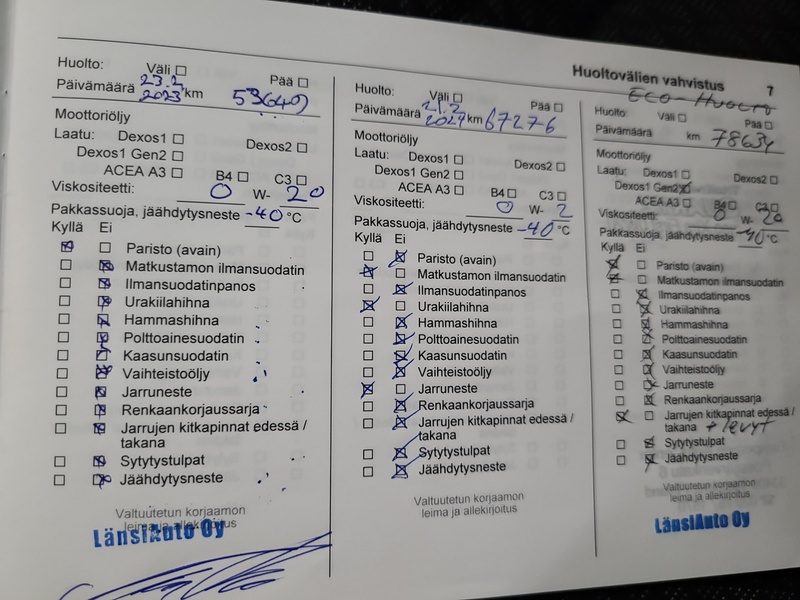 Huoltovälien vahvistus 7
Huolto: Väli Pää
Päivämäärä 23.2 2023 km 53649
Moottoriöljy
Laatu: Dexos1 Dexos2
Dexos1 Gen2
ACEA A3 B4 C3
Viskositeetti: 0 W- 20
Pakkassuoja, jäähdytysneste -40 °C
Kyllä Ei
Paristo (avain)
Matkustamon ilmansuodatin
Ilmansuodatinpanos
Urakiilahihna
Hammashihna
Polttoainesuodatin
Kaasunsuodatin
Vaihteistoöljy
Jarruneste
Renkaankorjaussarja
Jarrujen kitkapinnat edessä /
takana
Sytytystulpat
Jäähdytysneste
Valtuutetun korjaamon
leima ja allekirjoitus
LänsiAuto Oy
Huolto: Väli Pää
Päivämäärä 21.2 km 67276
Moottoriöljy
Laatu: Dexos1 Dexos2
Dexos1 Gen2
ACEA A3 B4 C3
Viskositeetti: 0 W- 2
Pakkassuoja, jäähdytysneste -40 °C
Kyllä Ei
Paristo (avain)
Matkustamon ilmansuodatin
Ilmansuodatinpanos
Urakiilahihna
Hammashihna
Polttoainesuodatin
Kaasunsuodatin
Vaihteistoöljy
Jarruneste
Renkaankorjaussarja
Jarrujen kitkapinnat edessä /
takana
Sytytystulpat
Jäähdytysneste
Valtuutetun korjaamon
leima ja allekirjoitus
Eco-Huolto
Huolto: Väli Pää
Päivämäärä km 78634
Moottoriöljy
Laatu: Dexos1 Dexos2
Dexos1 Gen2
ACEA A3 B4 C3
Viskositeetti: 0 W- 20
Pakkassuoja, jäähdytysneste -40 °C
Kyllä Ei
Paristo (avain)
Matkustamon ilmansuodatin
Ilmansuodatinpanos
Urakiilahihna
Hammashihna
Polttoainesuodatin
Kaasunsuodatin
Vaihteistoöljy
Jarruneste
Renkaankorjaussarja
Jarrujen kitkapinnat edessä /
takana + levyt
Sytytystulpat
Jäähdytysneste
Valtuutetun korjaamon
leima ja allekirjoitus
LänsiAuto Oy